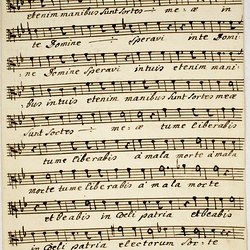 etenim manibus sunt sortes me æ in
te Domine Speravi in te Domi
ne Domine Speravi in tuis etenim mani
bus in tuis etenim manibus sunt sortes meæ
sunt Sortes me æ tu me liberabis
tu me liberabis á mala morte á mala
morte tu me liberabis á mala morte
et beabis in Cœli patria et beabis
in Cœli patria electorum Sor te